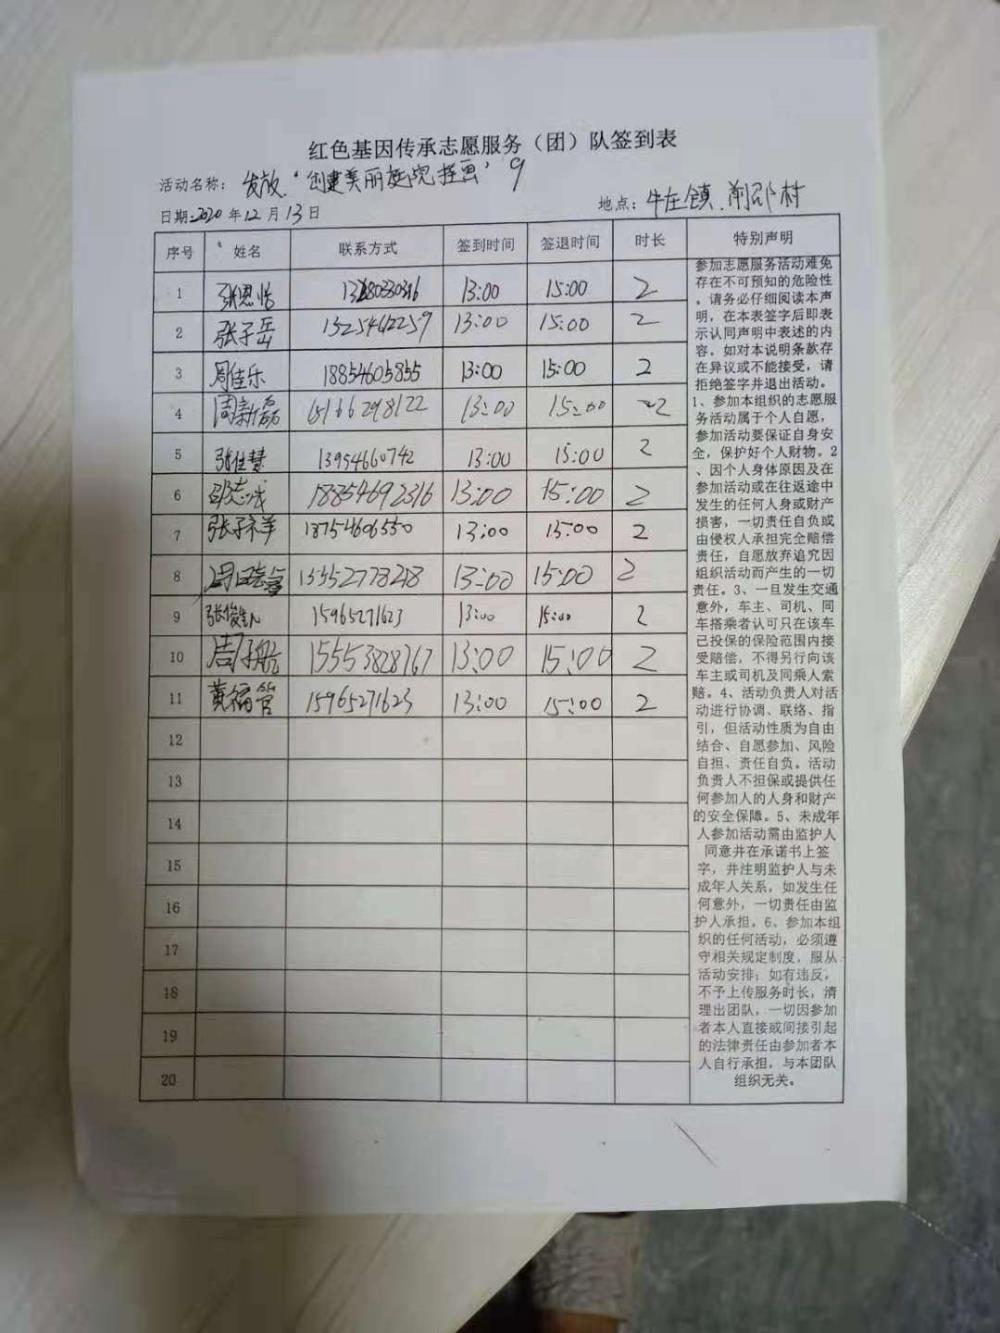 红色基因传承志愿服务（团）队签到表
活动名称：发放“创建美丽庭院挂画” 9
日期：2020年12月13日 地点：牛庄镇.前邵村
序号 姓名 联系方式 签到时间 签退时间 时长 特别声明
1 张恩恺 13:00 15:00 2
2 张子岳 13254622259 13:00 15:00 2
3 周佳乐 18854605855 13:00 15:00 2
4 周新磊 15166298122 13:00 15:00 2
5 张佳慧 13954660742 13:00 15:00 2
6 邵志成 18854692316 13:00 15:00 2
7 张子祥 18754606550 13:00 15:00 2
8 15552778218 13:00 15:00 2
9 张俊 15965271623 13:00 15:00 2
10 周子航 15553828767 13:00 15:00 2
11 黄福营 15965271623 13:00 15:00 2
12
13
14
15
16
17
18
19
20
参加志愿服务活动难免
存在不可预知的危险性
，请务必仔细阅读本声
明，在本表签字后即表
示认同声明中表述的内
容。如对本说明条款存
在异议或不能接受，请
拒绝签字并退出活动。
1、参加本组织的志愿服
务活动属于个人自愿，
参加活动要保证自身安
全，保护好个人财物。2
、因个人身体原因及在
参加活动或在往返途中
发生的任何人身或财产
损害，一切责任自负或
由侵权人承担完全赔偿
责任，自愿放弃追究因
组织活动而产生的一切
责任。3、一旦发生交通
意外，车主、司机、同
车搭乘者认可只在该车
已投保的保险范围内接
受赔偿，不得另行向该
车主或司机及同乘人索
赔。4、活动负责人对活
动进行协调、联络、指
引，但活动性质为自由
结合、自愿参加、风险
自担、责任自负。活动
负责人不担保或提供任
何参加人的人身和财产
的安全保障。5、未成年
人参加活动需由监护人
同意并在承诺书上签
字，并注明监护人与未
成年人关系，如发生任
何意外，一切责任由监
护人承担。6、参加本组
织的任何活动，必须遵
守相关规定制度，服从
活动安排；如有违反，
不予上传服务时长，清
理出团队，一切因参加
者本人直接或间接引起
的法律责任由参加者本
人自行承担，与本团队
组织无关。